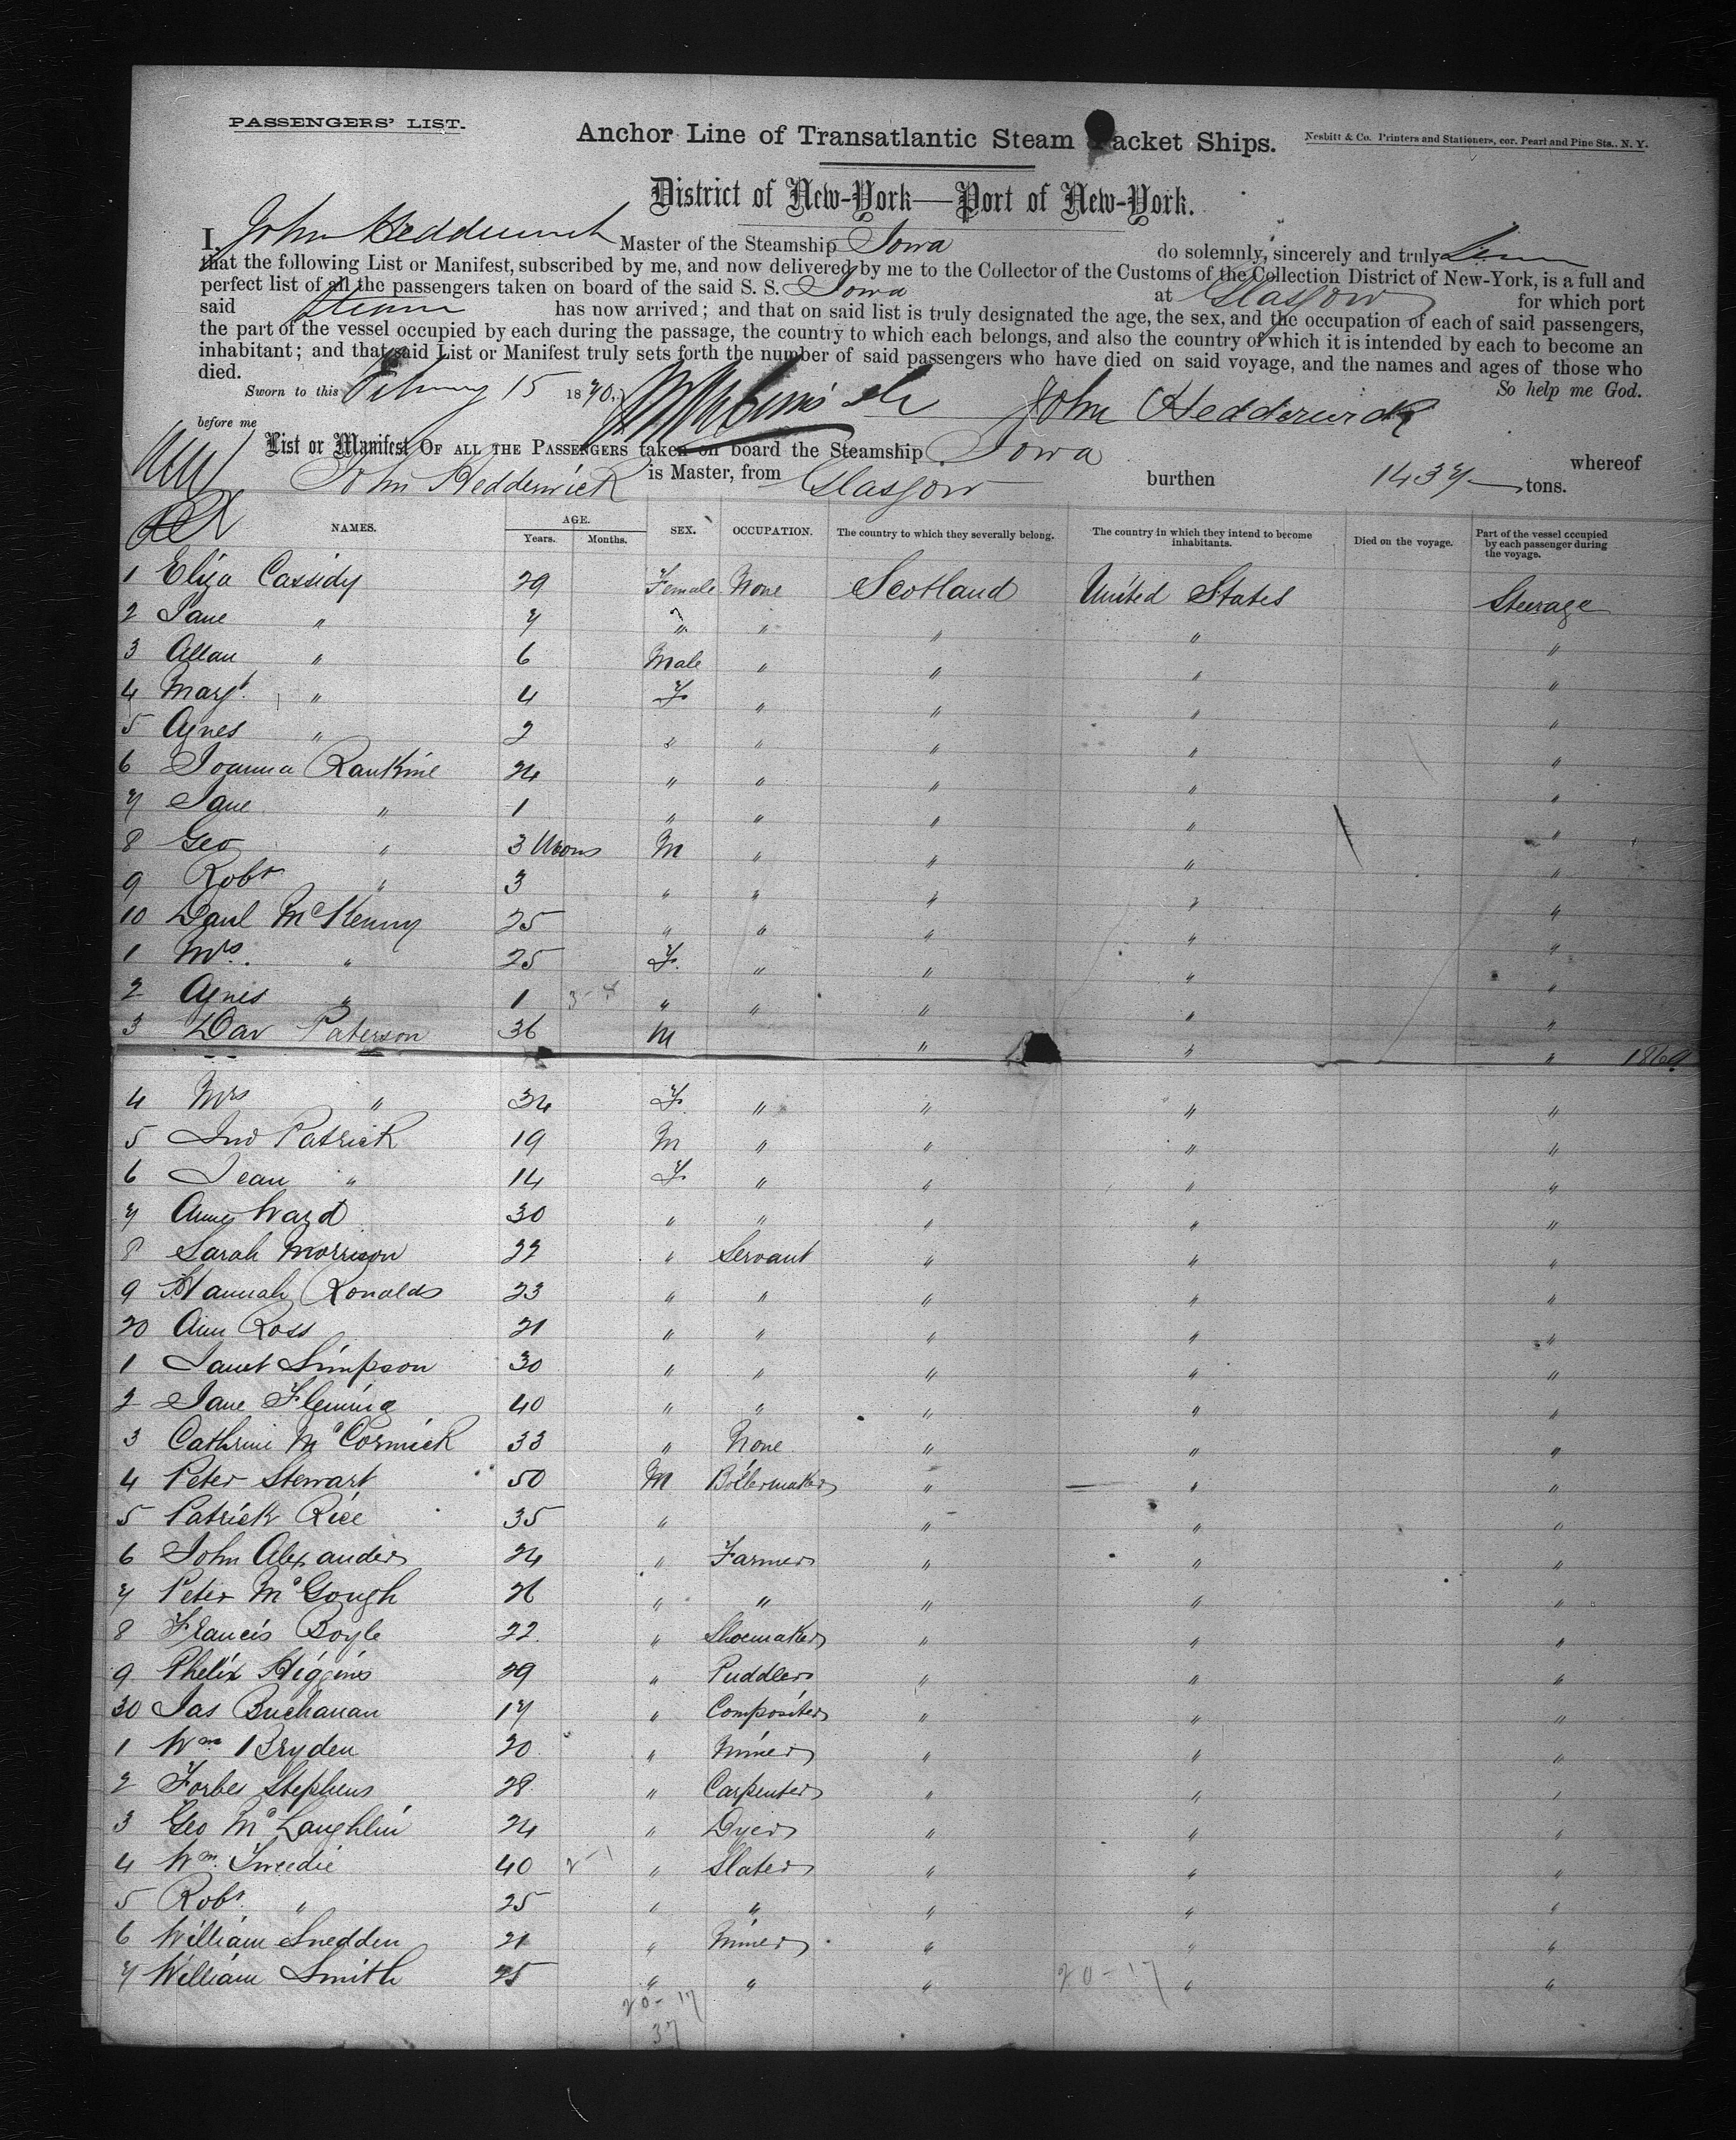 PASSENGERS' LIST.
Anchor Line of Transatlantic Steam Packet Ships.
Nesbitt & Co. Printers and Stationers, cor. Pearl and Pine Sts., N. Y.
District of New-York—Port of New-York.
I, John Hedderwick Master of the Steamship Iowa do solemnly, sincerely and truly
that the following List or Manifest, subscribed by me, and now delivered by me to the Collector of the Customs of the Collection District of New-York, is a full and
perfect list of all the passengers taken on board of the said S. S. Iowa at Glasgow for which port
said has now arrived; and that on said list is truly designated the age, the sex, and the occupation of each of said passengers,
the part of the vessel occupied by each during the passage, the country to which each belongs, and also the country of which it is intended by each to become an
inhabitant; and that said List or Manifest truly sets forth the number of said passengers who have died on said voyage, and the names and ages of those who
died. So help me God.
Sworn to this February 15 1870, John Hedderwick
before me
List or Manifest OF ALL THE PASSENGERS taken on board the Steamship Iowa whereof
John Hedderwick is Master, from Glasgow burthen 1437 tons.
NAMES. AGE. Years. Months. SEX. OCCUPATION. The country to which they severally belong. The country in which they intend to become inhabitants. Died on the voyage. Part of the vessel occupied by each passenger during the voyage.
1 Eliza Cassidy 29 Female None Scotland United States Steerage
2 Jane " 7 " " " " "
3 Allan " 6 Male " " " "
4 Margt. " 4 F " " " "
5 Agnes " 2 " " " " "
6 Joanna Rankine 24 " " " " "
7 Jane " 1 " " " " "
8 Geo " 3 Mons M " " " "
9 Robt " 3 " " " " "
10 Danl McKenny 25 " " " " "
1 Mrs. " 25 F. " " " "
2 Agnes " 1 " " " " "
3 Dav Paterson 36 M " " " 1869
4 Mrs " 34 F. " " " "
5 Jno Patrick 19 M " " " "
6 Jean " 14 F. " " " "
7 Ward 30 " " " " "
8 Sarah Morrison 22 " Servant " " "
9 Hannah Ronalds 23 " " " " "
20 Ann Ross 21 " " " " "
1 Janet Simpson 30 " " " " "
2 Jane Fleming 40 " " " " "
3 Cathrine McCormick 33 " None " " "
4 Peter Stewart 50 M Boilermaker " " "
5 Patrick Rice 35 " " " "
6 John Alexander 24 " Farmer " " "
7 Peter McGough 26 " " " " "
8 Francis Boyle 22 " Shoemaker " " "
9 Phelix Higgins 29 " Puddler " " "
30 Jas Buchanan 17 " Compositer " " "
1 Wm Bryden 20 " Miner " " "
2 Forbes Stephens 28 " Carpenter " " "
3 Geo McLaughlin 24 " Dyer " " "
4 Wm. Tweedie 40 2-1 " Slater " " "
5 Robt. " 25 " " " " "
6 William Snedden 21 " Miner " " "
7 William Smith 25 " " " " "
20-17
20-17
37